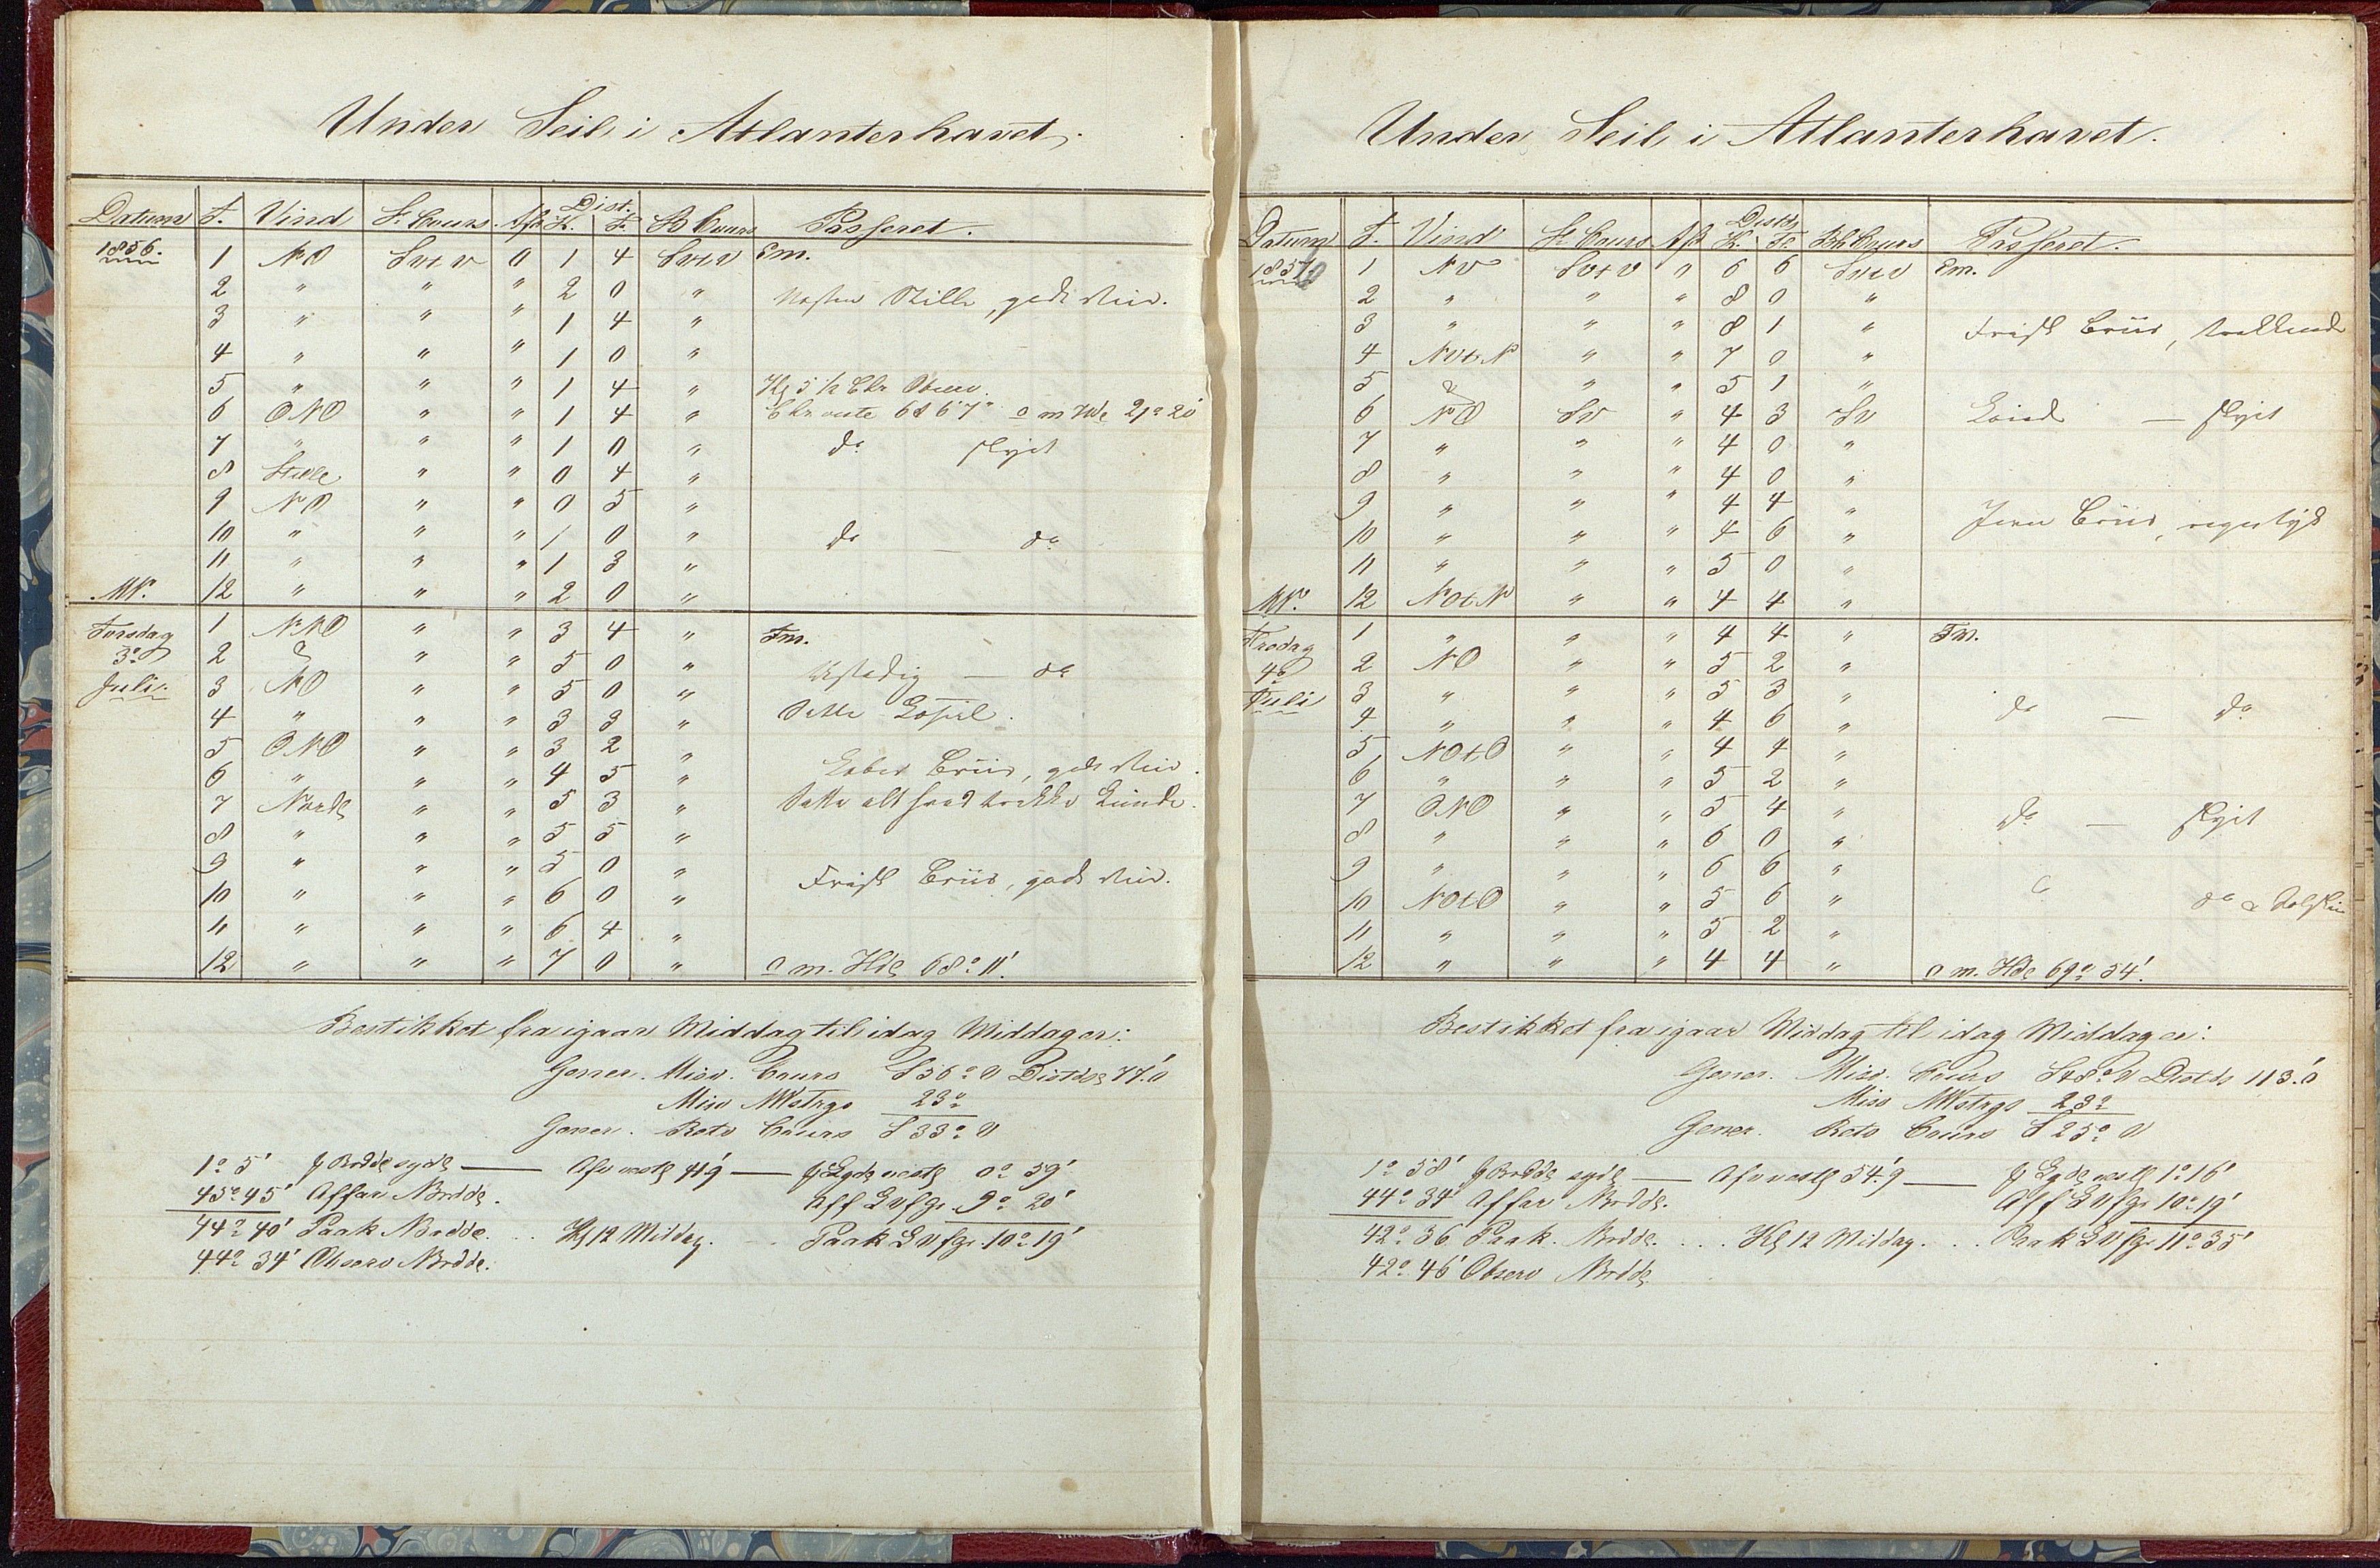 Under Seil i Atlanterhavet.
Datum T. Vind St. Cours. Afd Dist. K. F. B Cours Passeret.
1856. 1 NO SvtV 0 1 4 SvtV Em.
2 " " " 2 0 " Næsten Stille, godt Veir.
3 " " " 1 4 "
4 " " " 1 0 "
5 " " " 1 4 " Kl 5 1/2 Chr Observ.
6 ONO " " 1 4 " 21° 20'
7 " " " 1 0 " do skyet
8 Stille " " 0 4 "
9 NO " " 0 5 "
10 " " " 1 0 " do — do
11 " " " 1 3 "
MN. 12 " " " 2 0 "
Torsdag 1 NNO " " 3 4 " Fm.
3° 2 do " " 5 0 " Ustadig — do
Juli. 3 NO " " 5 0 "
4 " " " 3 3 "
5 ONO " " 3 2 "
6 " " " 4 5 " Laber Briis, godt Veir.
7 Nordl " " 5 3 "
8 " " " 5 5 "
9 " " " 5 0 "
10 " " " 6 0 " Frisk Briis, godt Veir.
11 " " " 6 4 "
12 " " " 7 0 " o m. Hde 68° 11'.
Bestikket fra igaar Middag til idag Middag er:
Gener. Misv. Cours S 56° V Distds 77.'0
Misv 23°
Gener. Retv Cours S 33° V
1° 5' f Brdde sydl — Afv vestl 41'9 — f Lgde vestl 0° 59'
45° 45' Affar Nbrdde. Aff L Vfgr 9° 20'
44° 40' Paak Nbrdde. . . Kl 12 Middag. . . Paak L Vfgr 10° 19'
44° 34' Observ Nbrdde.
Under Seil i Atlanterhavet.
Datum T. Vind St Cours Afd Distds K. F. Cours Passeret.
1856 1 NV SvtV " 6 6 SvtV Em.
2 " " " 8 0 "
3 " " " 8 1 " Frisk Briis, trækkende
4 NVtN " " 7 0 "
5 do " " 5 1 "
6 NO SV " 4 3 SV — skyet
7 " " " 4 0 "
8 " " " 4 0 "
9 " " " 4 4 "
10 " " " 4 6 " Jevn Briis, regntyk
11 " " " 5 0 "
MN. 12 NOtN " " 4 4 "
Fredag 1 " " " 4 4 " Fm.
4° 2 NO " " 5 2 "
Juli 3 " " " 5 3 "
4 " " " 4 6 " do — do
5 NOtO " " 4 4 "
6 " " " 5 2 "
7 ONO " " 5 4 " do — skyet
8 " " " 6 0 "
9 " " " 6 6 "
10 NOtO " " 5 6 " do & Solskin
11 " " " 5 2 "
12 " " " 4 4 " o m. Hde 69° 54'.
Bestikket fra igaar Middag til idag Middag er:
Gener. Misv. Cours S 48° V Distds 113.'0
Misv 23°
Gener. Retv Cours S 25° V
1° 58' f Brdde sydl — Afv vestl 54'.9 — f Lgde vestl 1° 16'
44° 34' Affar Nbrdde. Aff L Vfgr 10° 19'
42° 36 Paak. Nbrdde. . . . Kl 12 Middag. . . Paak L Vfgr 11° 35'
42° 46' Observ Nbrdde